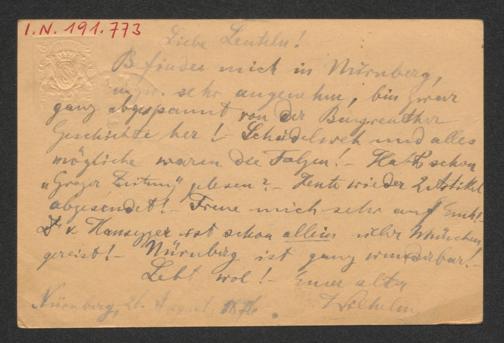 I.N. 191.773
Liebe Leuteln!
Befinde mich in Nürnberg,
mir sehr angenehm, bin zwar
ganz abgespannt von der Bayreuther
Geschichte her! Schädelweh und alles
mögliche waren die Folgen! - Habts schon
"Grazer Zeitung" gelesen? - Heute wieder 2 Artikel
abgesendet! - Freue mich sehr auf Euch!
v. Hausegger ist schon allein München
gereist! - Nürnberg ist ganz wunderbar! -
Lebt wol! - Euer alter
Nürnberg, 26. August 1876. Wilhelm